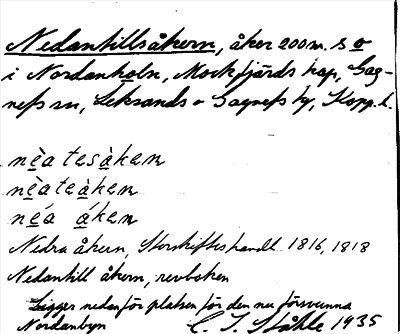 Nedantillsåkern, åker 200 m. S o
i Nordanholn, Mockfjärds kap, Gag-
nefs sn, Leksands o Gagnefs tg, Kopp. l.
nèatesàken
nèateàken
néa áken
Nedra åkern, Storskifteshandl. 1816, 1818
Nedantill åkern, revboken
Ligger nedanför platsen för den nu försvunna
Nordanbyn C. I. Ståhle 1935